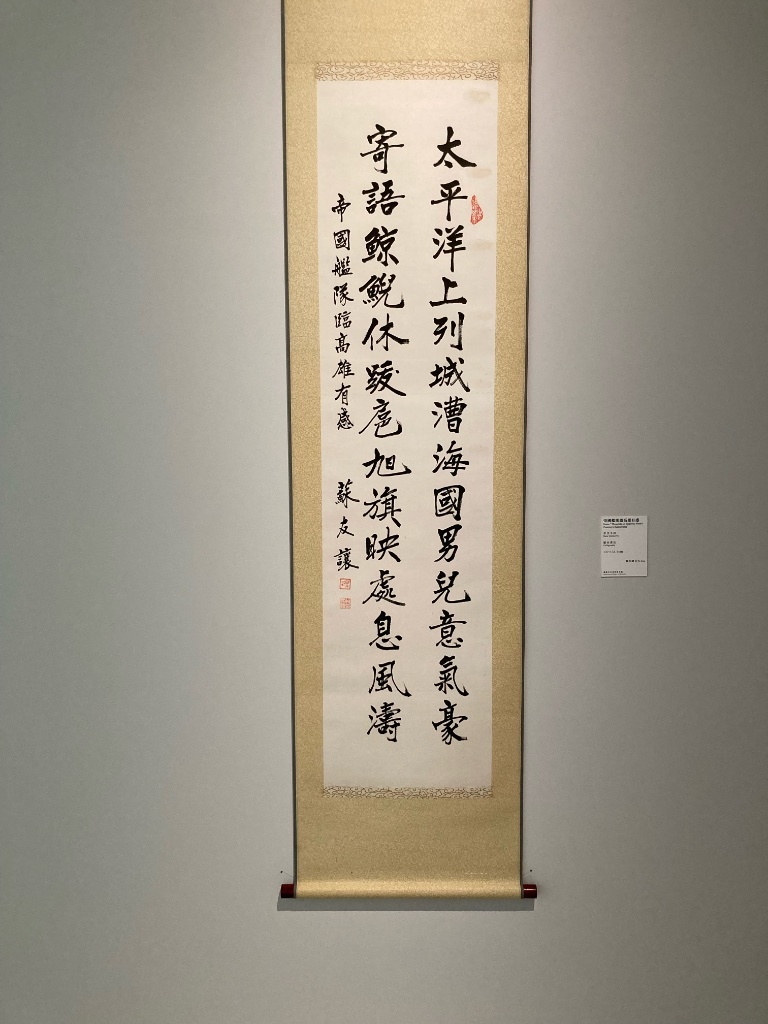 太平洋上列城漕海國男兒意氣豪
寄語鯨鯢休跋扈旭旗映處息風濤
帝國艦隊臨高雄有感
蘇友讓